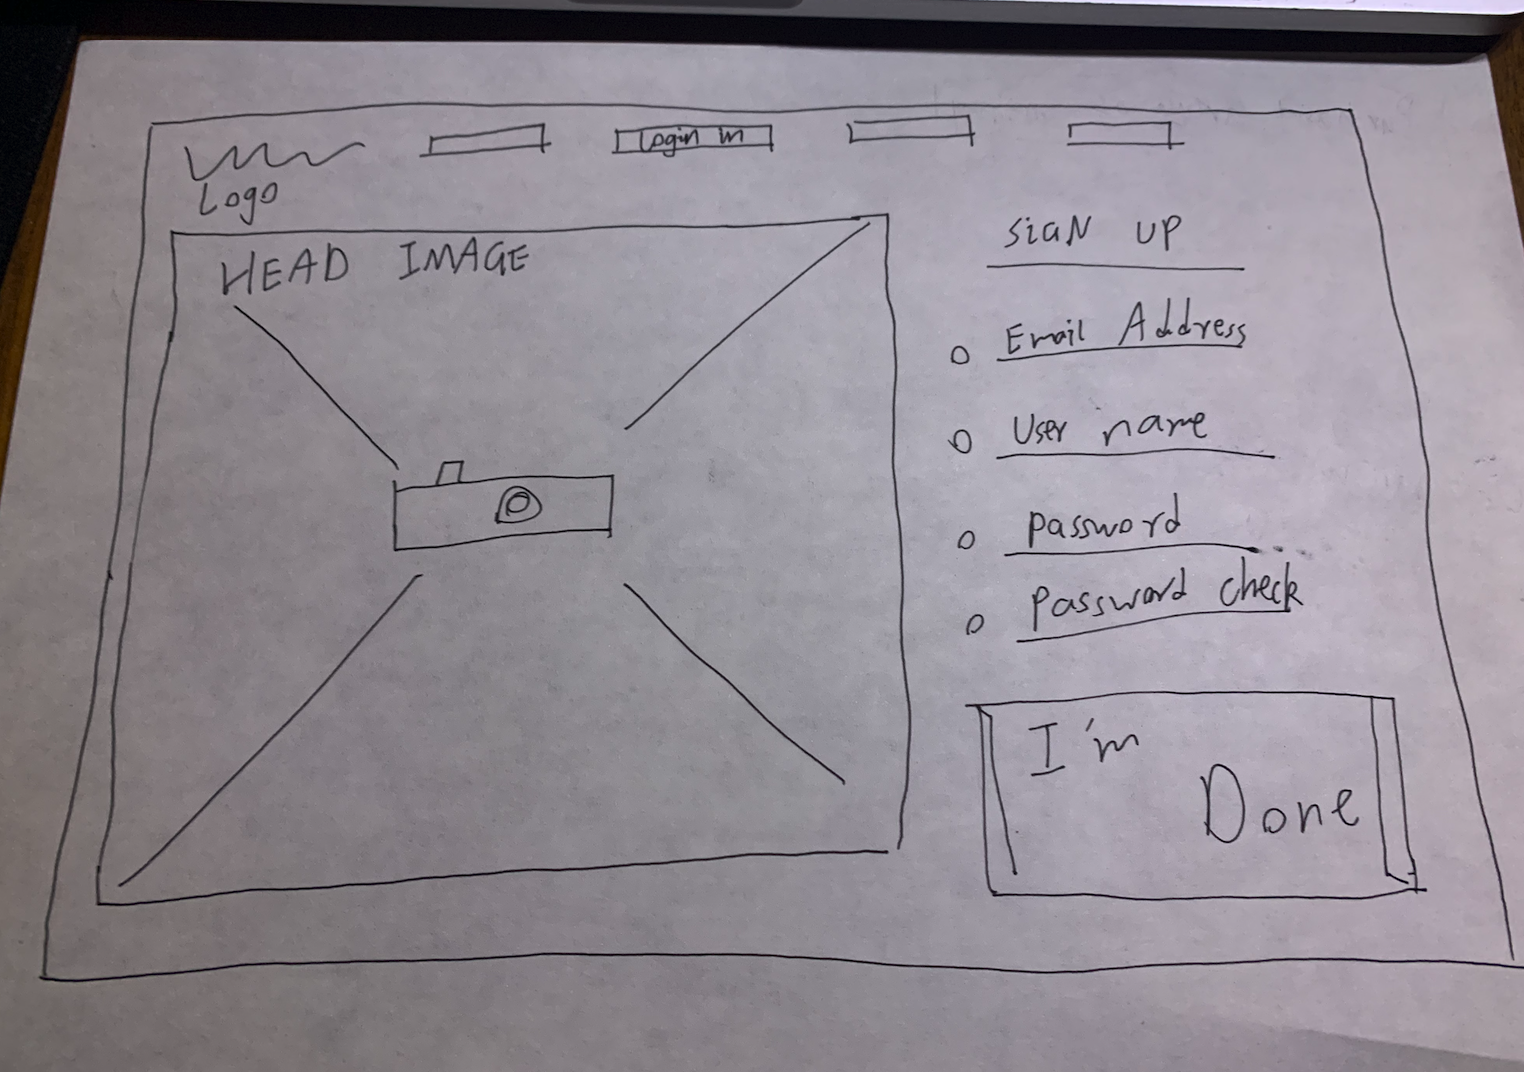 Login in
Logo
HEAD IMAGE
SIGN UP
Email Address
User name
password
password check
I'm
Done